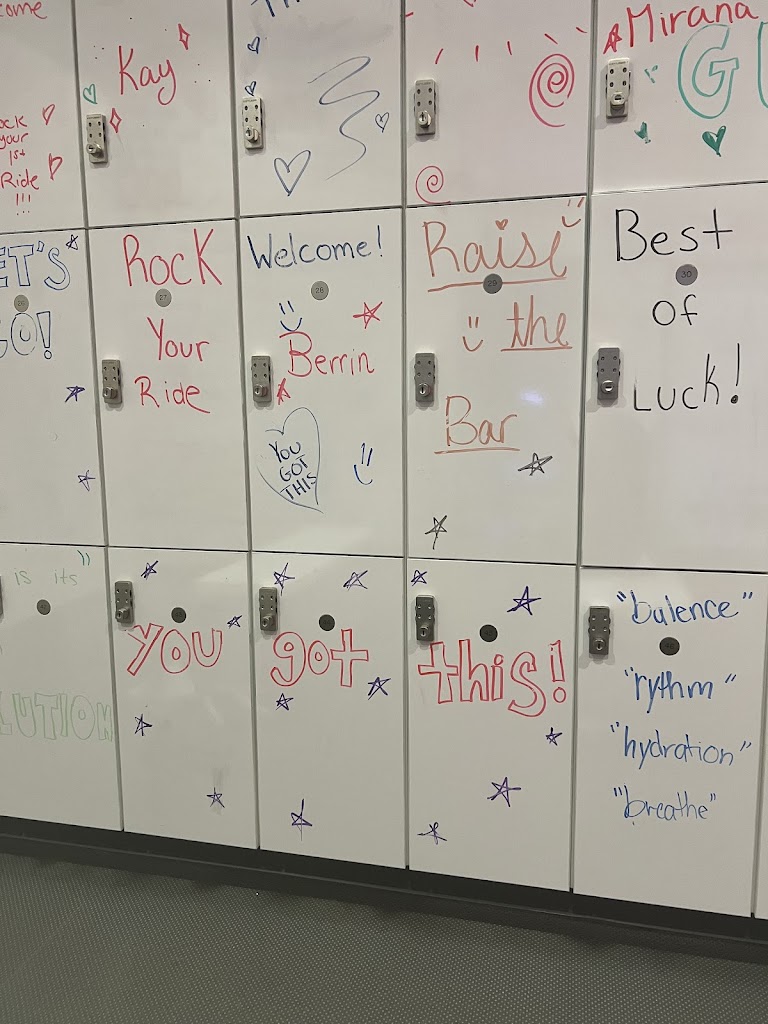 come
Kay
Mirana
ock
your
1st
Ride
!!!
ET'S
26
GO!
Rock
27
Your
Ride
Welcome!
28
Berrin
YOU
GOT
THIS
Raise
29
the
Bar
Best
30
of
Luck!
is its
LUTION
YOU
got
this!
"balence"
"rythm"
"hydration"
"breathe"